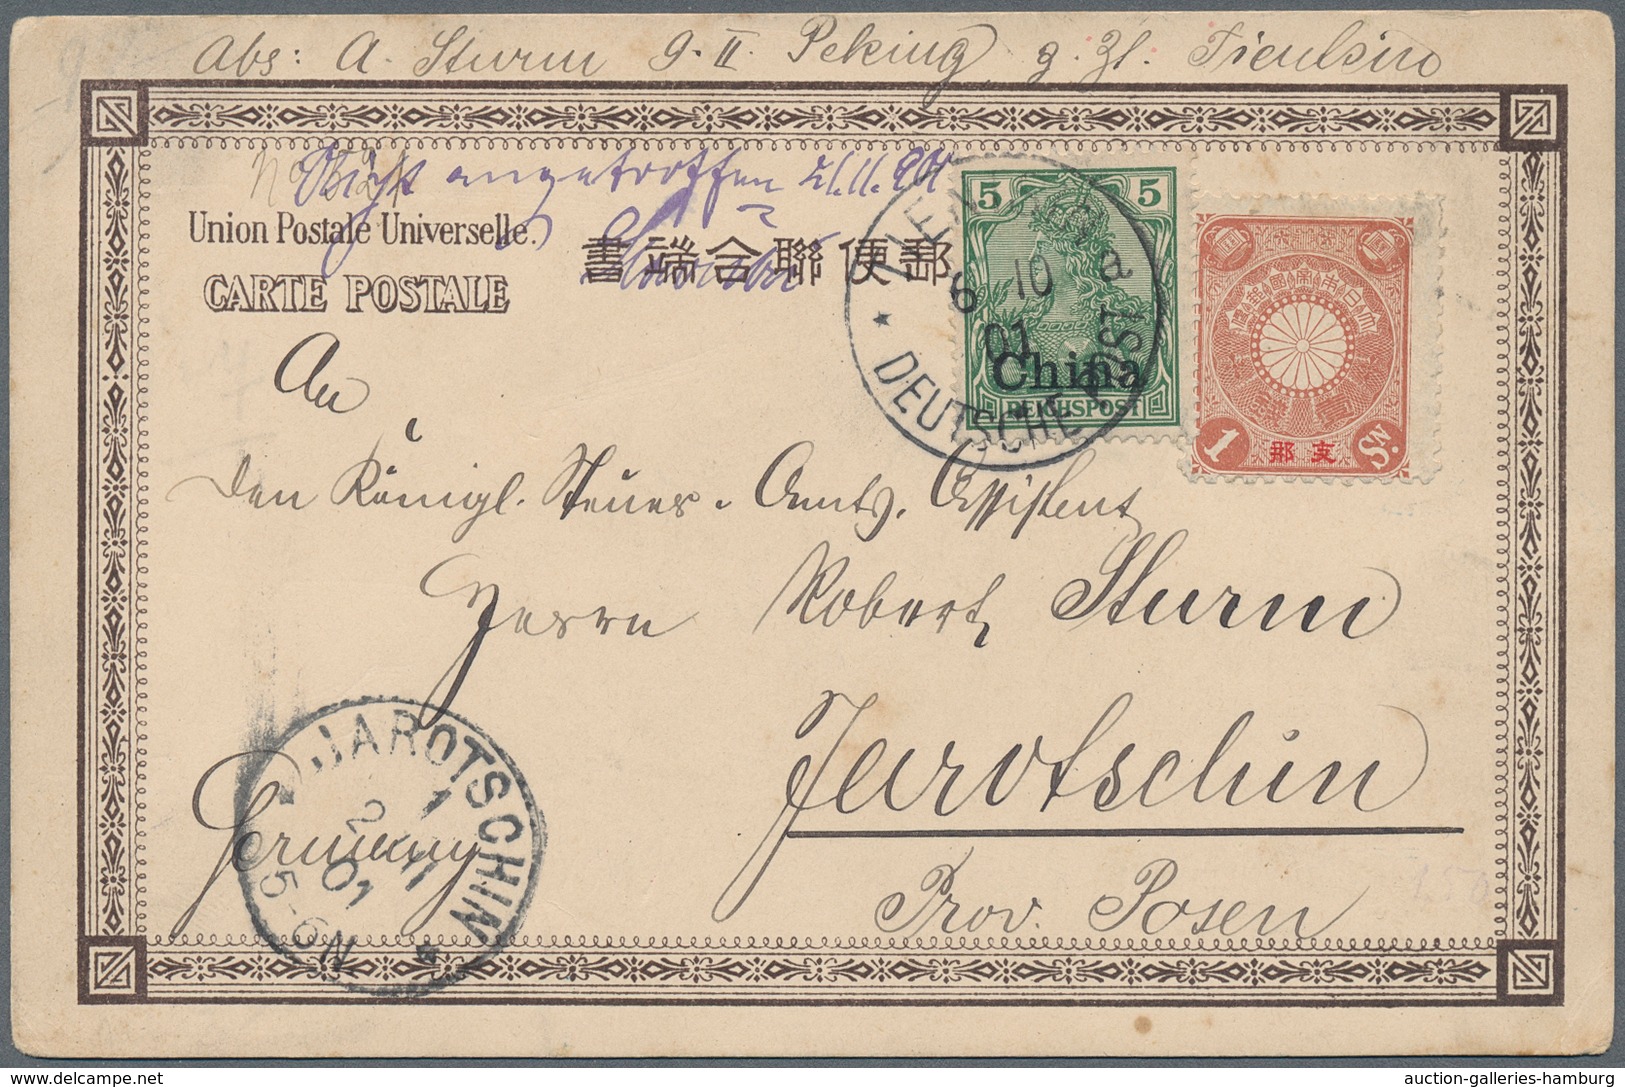 Abs: A. Sturm 9. II. Peking z. Zt. Tientsin
Nicht angetroffen 21.11.01
Union Postale Universelle.
CARTE POSTALE
書端合聯便郵
TIENTSIN a
6 10
01
* DEUTSCHE POST
5 5
China
REICHSPOST
大日本帝國郵便
1 Sn.
支那
An
den Königl. Steuer-Amts-Assistent
Herrn Robert Sturm
Jarotschin
Prov. Posen
Germany
JAROTSCHIN *
1
01
5-6N
auction-galleries-hamburg